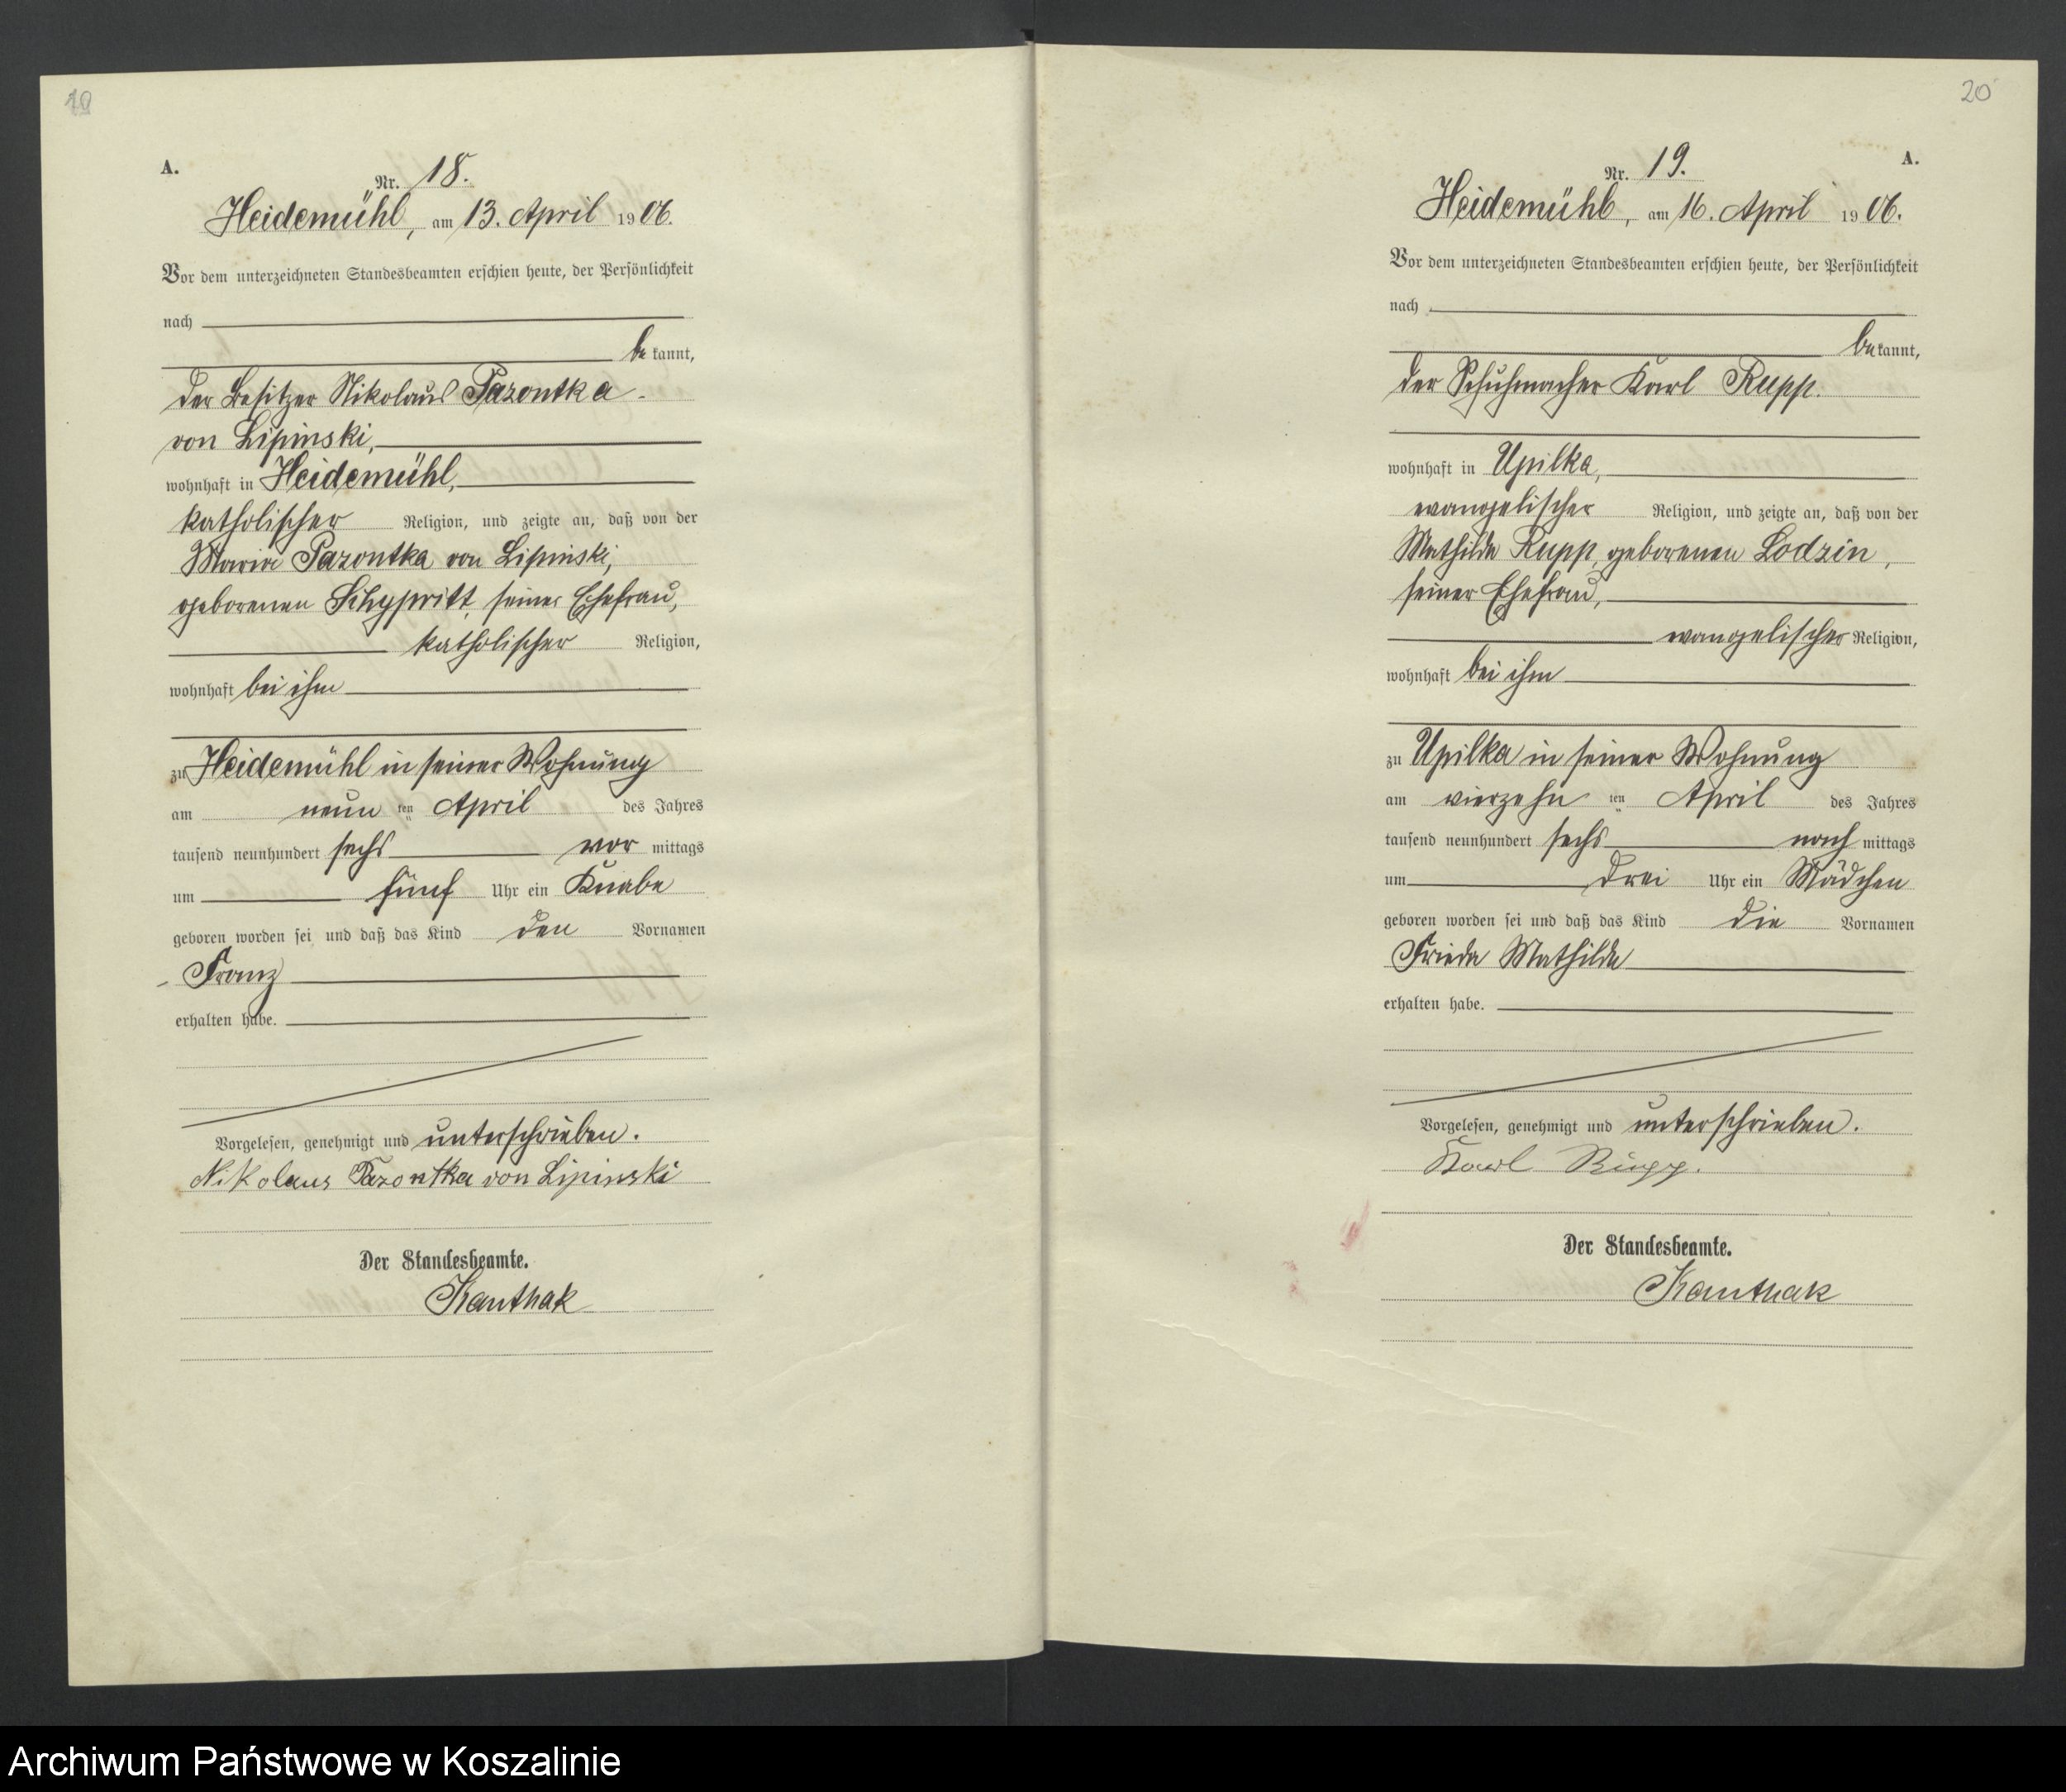 19
A.
Nr. 18.
Heidemühl, am 13. April 1906.
Vor dem unterzeichneten Standesbeamten erschien heute, der Persönlichkeit
nach
bekannt,
der Besitzer Nikolaus Pazontka
von Lipinski,
wohnhaft in Heidemühl,
katholischer Religion, und zeigte an, daß von der
Maria Pazontka von Lipinski,
geborenen Schypritt, seiner Ehefrau,
katholischer Religion,
wohnhaft bei ihm
zu Heidemühl in seiner Wohnung
am neun ten April des Jahres
tausend neunhundert sechs vor mittags
um fünf Uhr ein Knabe
geboren worden sei und daß das Kind den Vornamen
Franz
erhalten habe.
Vorgelesen, genehmigt und unterschrieben.
Nikolaus Pazontka von Lipinski
Der Standesbeamte.
Kanthak
20
A.
Nr. 19.
Heidemühl, am 16. April 1906.
Vor dem unterzeichneten Standesbeamten erschien heute, der Persönlichkeit
nach
bekannt,
der Schuhmacher Karl Rupp.
wohnhaft in Upilka,
evangelischer Religion, und zeigte an, daß von der
Mathilde Rupp, geborenen Lodzin,
seiner Ehefrau,
evangelischer Religion,
wohnhaft bei ihm
zu Upilka in seiner Wohnung
am vierzehn ten April des Jahres
tausend neunhundert sechs nach mittags
um drei Uhr ein Mädchen
geboren worden sei und daß das Kind die Vornamen
Frieda Mathilde
erhalten habe.
Vorgelesen, genehmigt und unterschrieben.
Karl Rupp.
Der Standesbeamte.
Kanthak
Archiwum Państwowe w Koszalinie